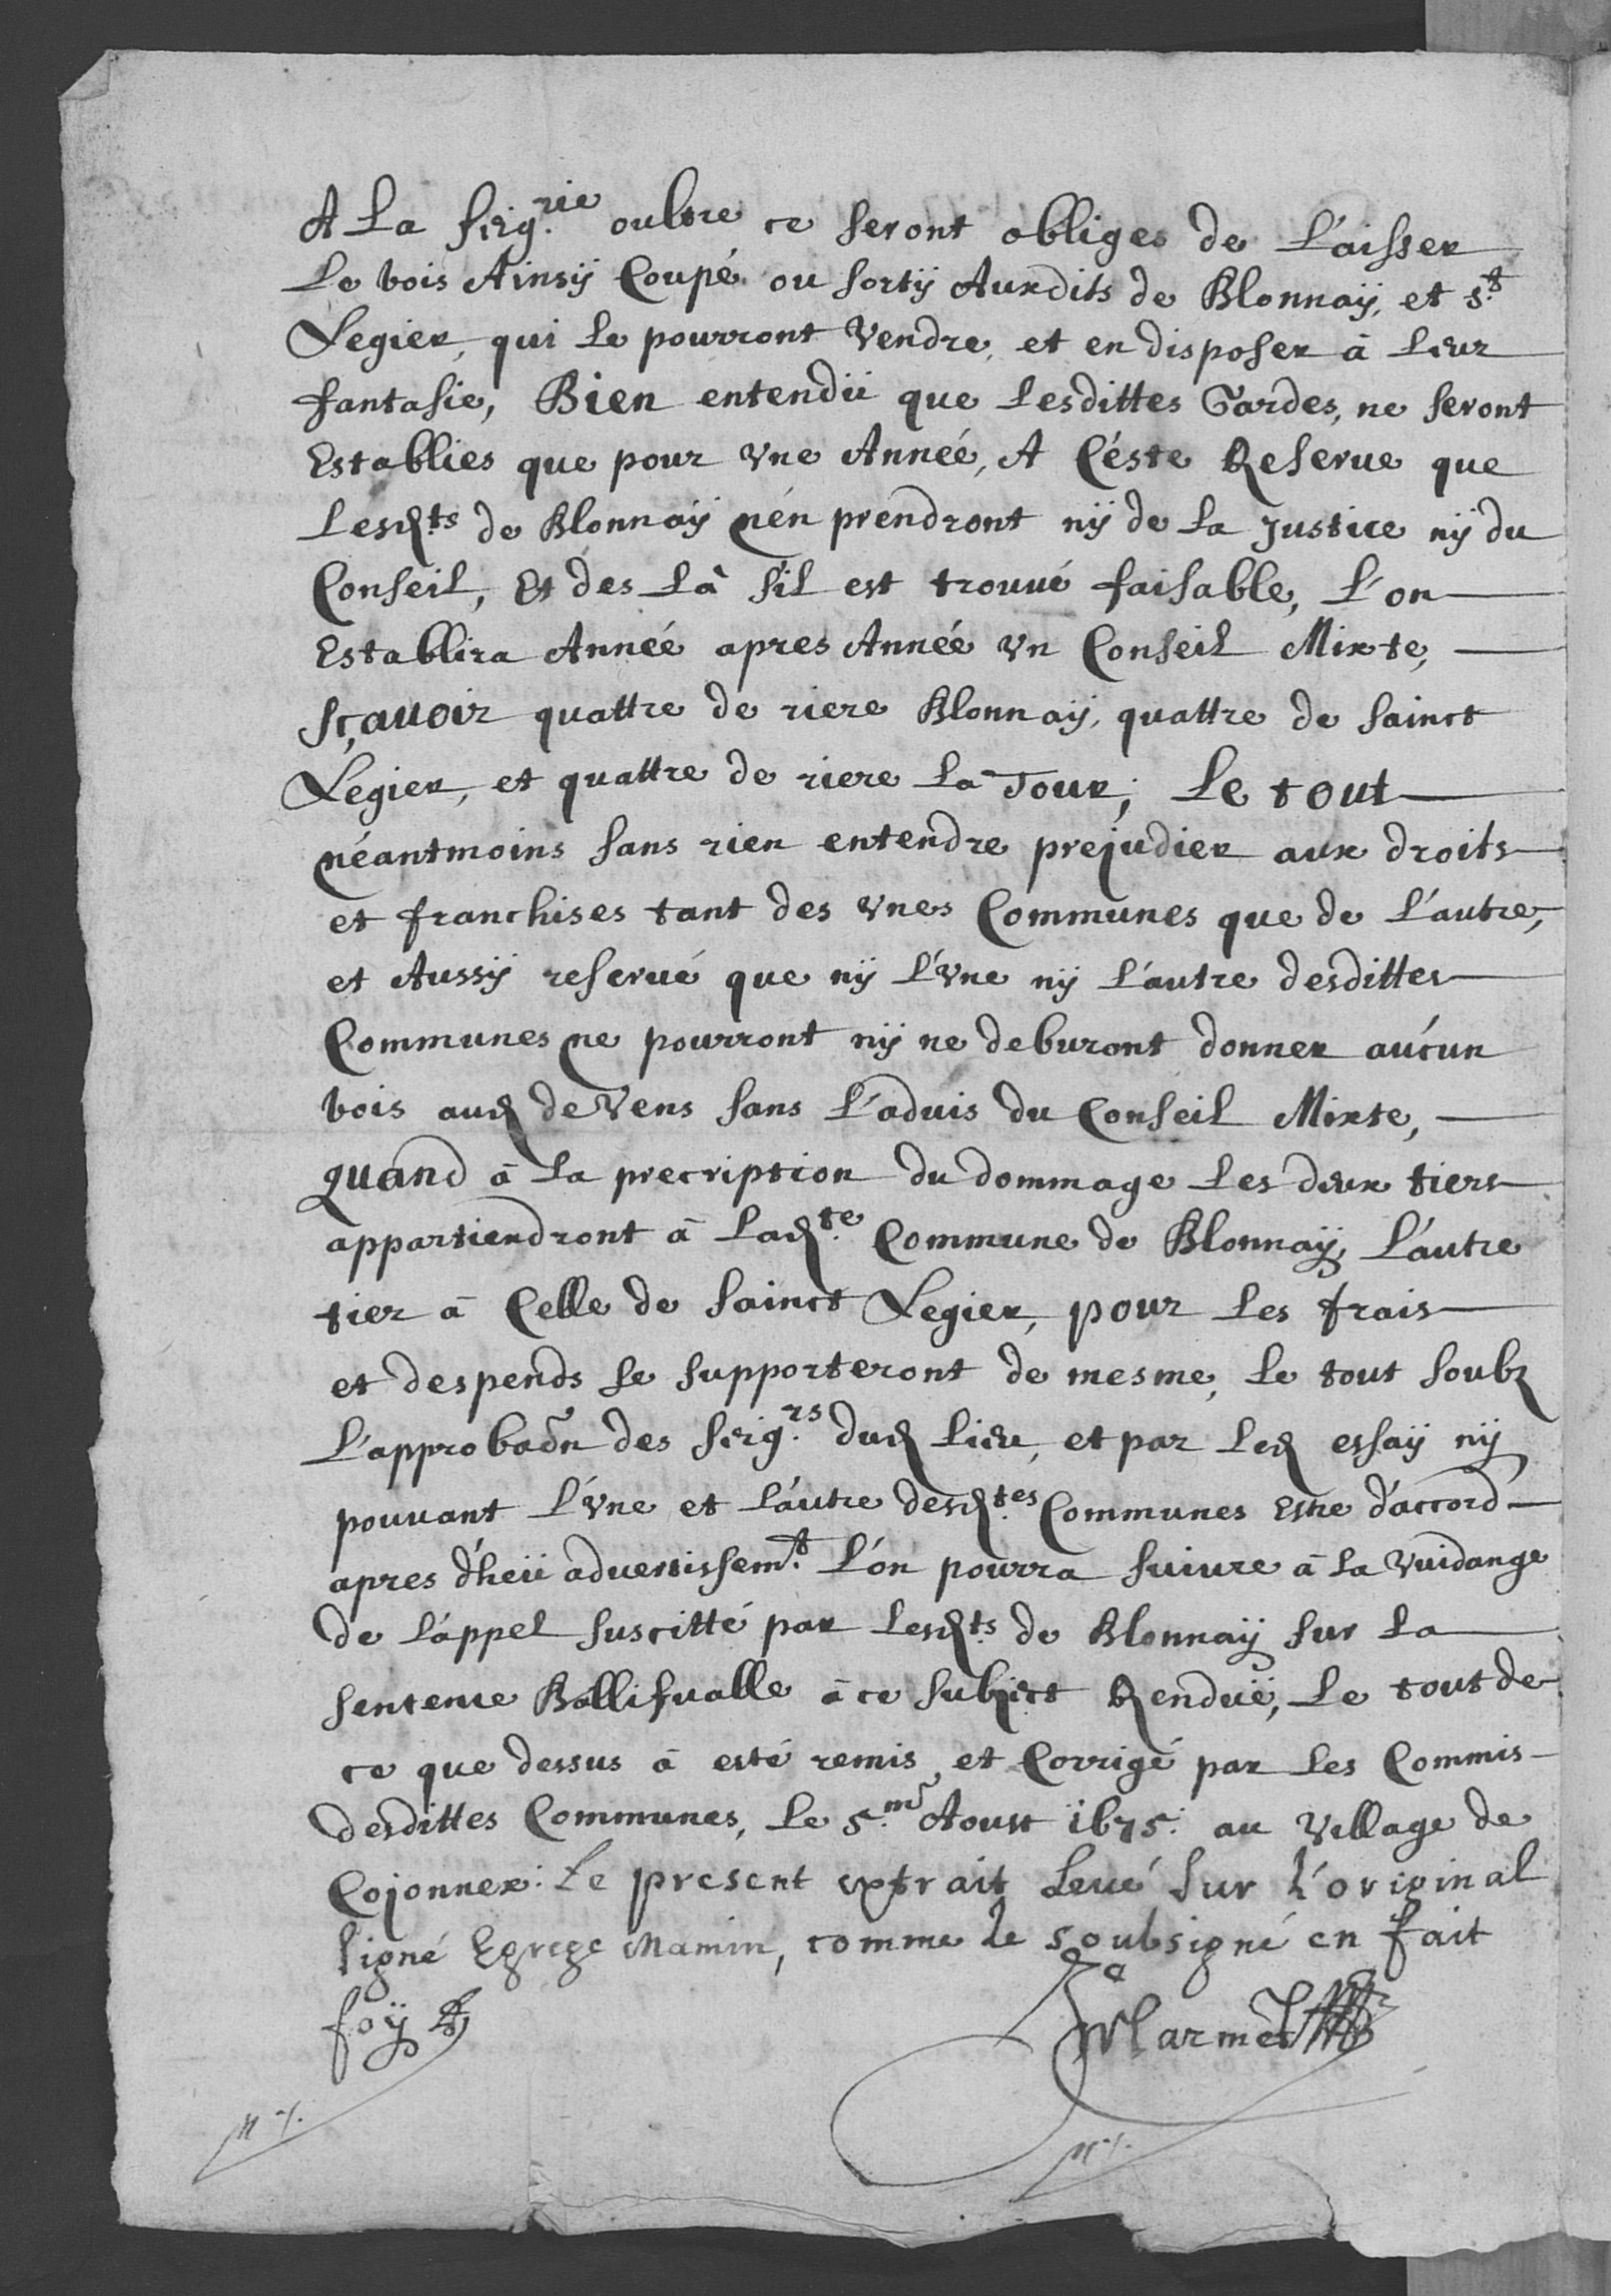 A La seig.rie oultre ce seront obliges de L'aisser
Le bois Ainsÿ Coupé ou sortÿ Auxdits de Blonnaÿ, et s.t
Legier, qui Le pourront Vendre, et en disposer à Leur
fantasie, Bien entendü que Lesdittes Gardes, ne seront
Establies que pour Vne Anneé, A Céste Reserue que
Lesd.ts de Blonnaÿ n'én prendront nÿ de La Justice nÿ du
Conseil, Et des Là s'il est trouué faisable, L'on
Establira Anneé apres Anneé Vn Conseil Mixte,
sçauoir quattre de riere Blonnaÿ, quattre de sainct
Legier, et quattre de riere La Tour; Le tout
néantmoins sans rien entendre prejudier aux droits
et franchises tant des Vnes Communes que de L'autre,
et Aussÿ reserué que nÿ L'Vne nÿ L'autre desdittes
Communes ne pourront nÿ ne deburont donner aucun
bois aud deVens sans L'aduis du Conseil Mixte,
quand à La precription du dommage Les deux tiers
appartiendront à Lad.te Commune de Blonnaÿ, L'autre
tier à Celle de sainct Legier, pour Les frais
et despends se supporteront de mesme, Le tout soubz
L'approbaõn des seig.rs dud Lieu, et par Led essaÿ nÿ
pouuant L'Vne et L'autre desd.tes Communes Estre d'accord
apres d'heü aduertissem.t L'on pourra suiure à La Vuidange
de L'appel suscitté par Lesd.ts de Blonnaÿ sur La
sentence Ballifualle à ce subject Renduë, Le tout de
ce que dessus à esté remis et Corrigé par Les Commis
desdittes Communes, Le 5.me Aoust 1675. au Village de
Cojonnex. Le present extrait Leué sur L'original
signé Egrege Mamin, comme Le soubsigné en fait
foÿ
Marmet